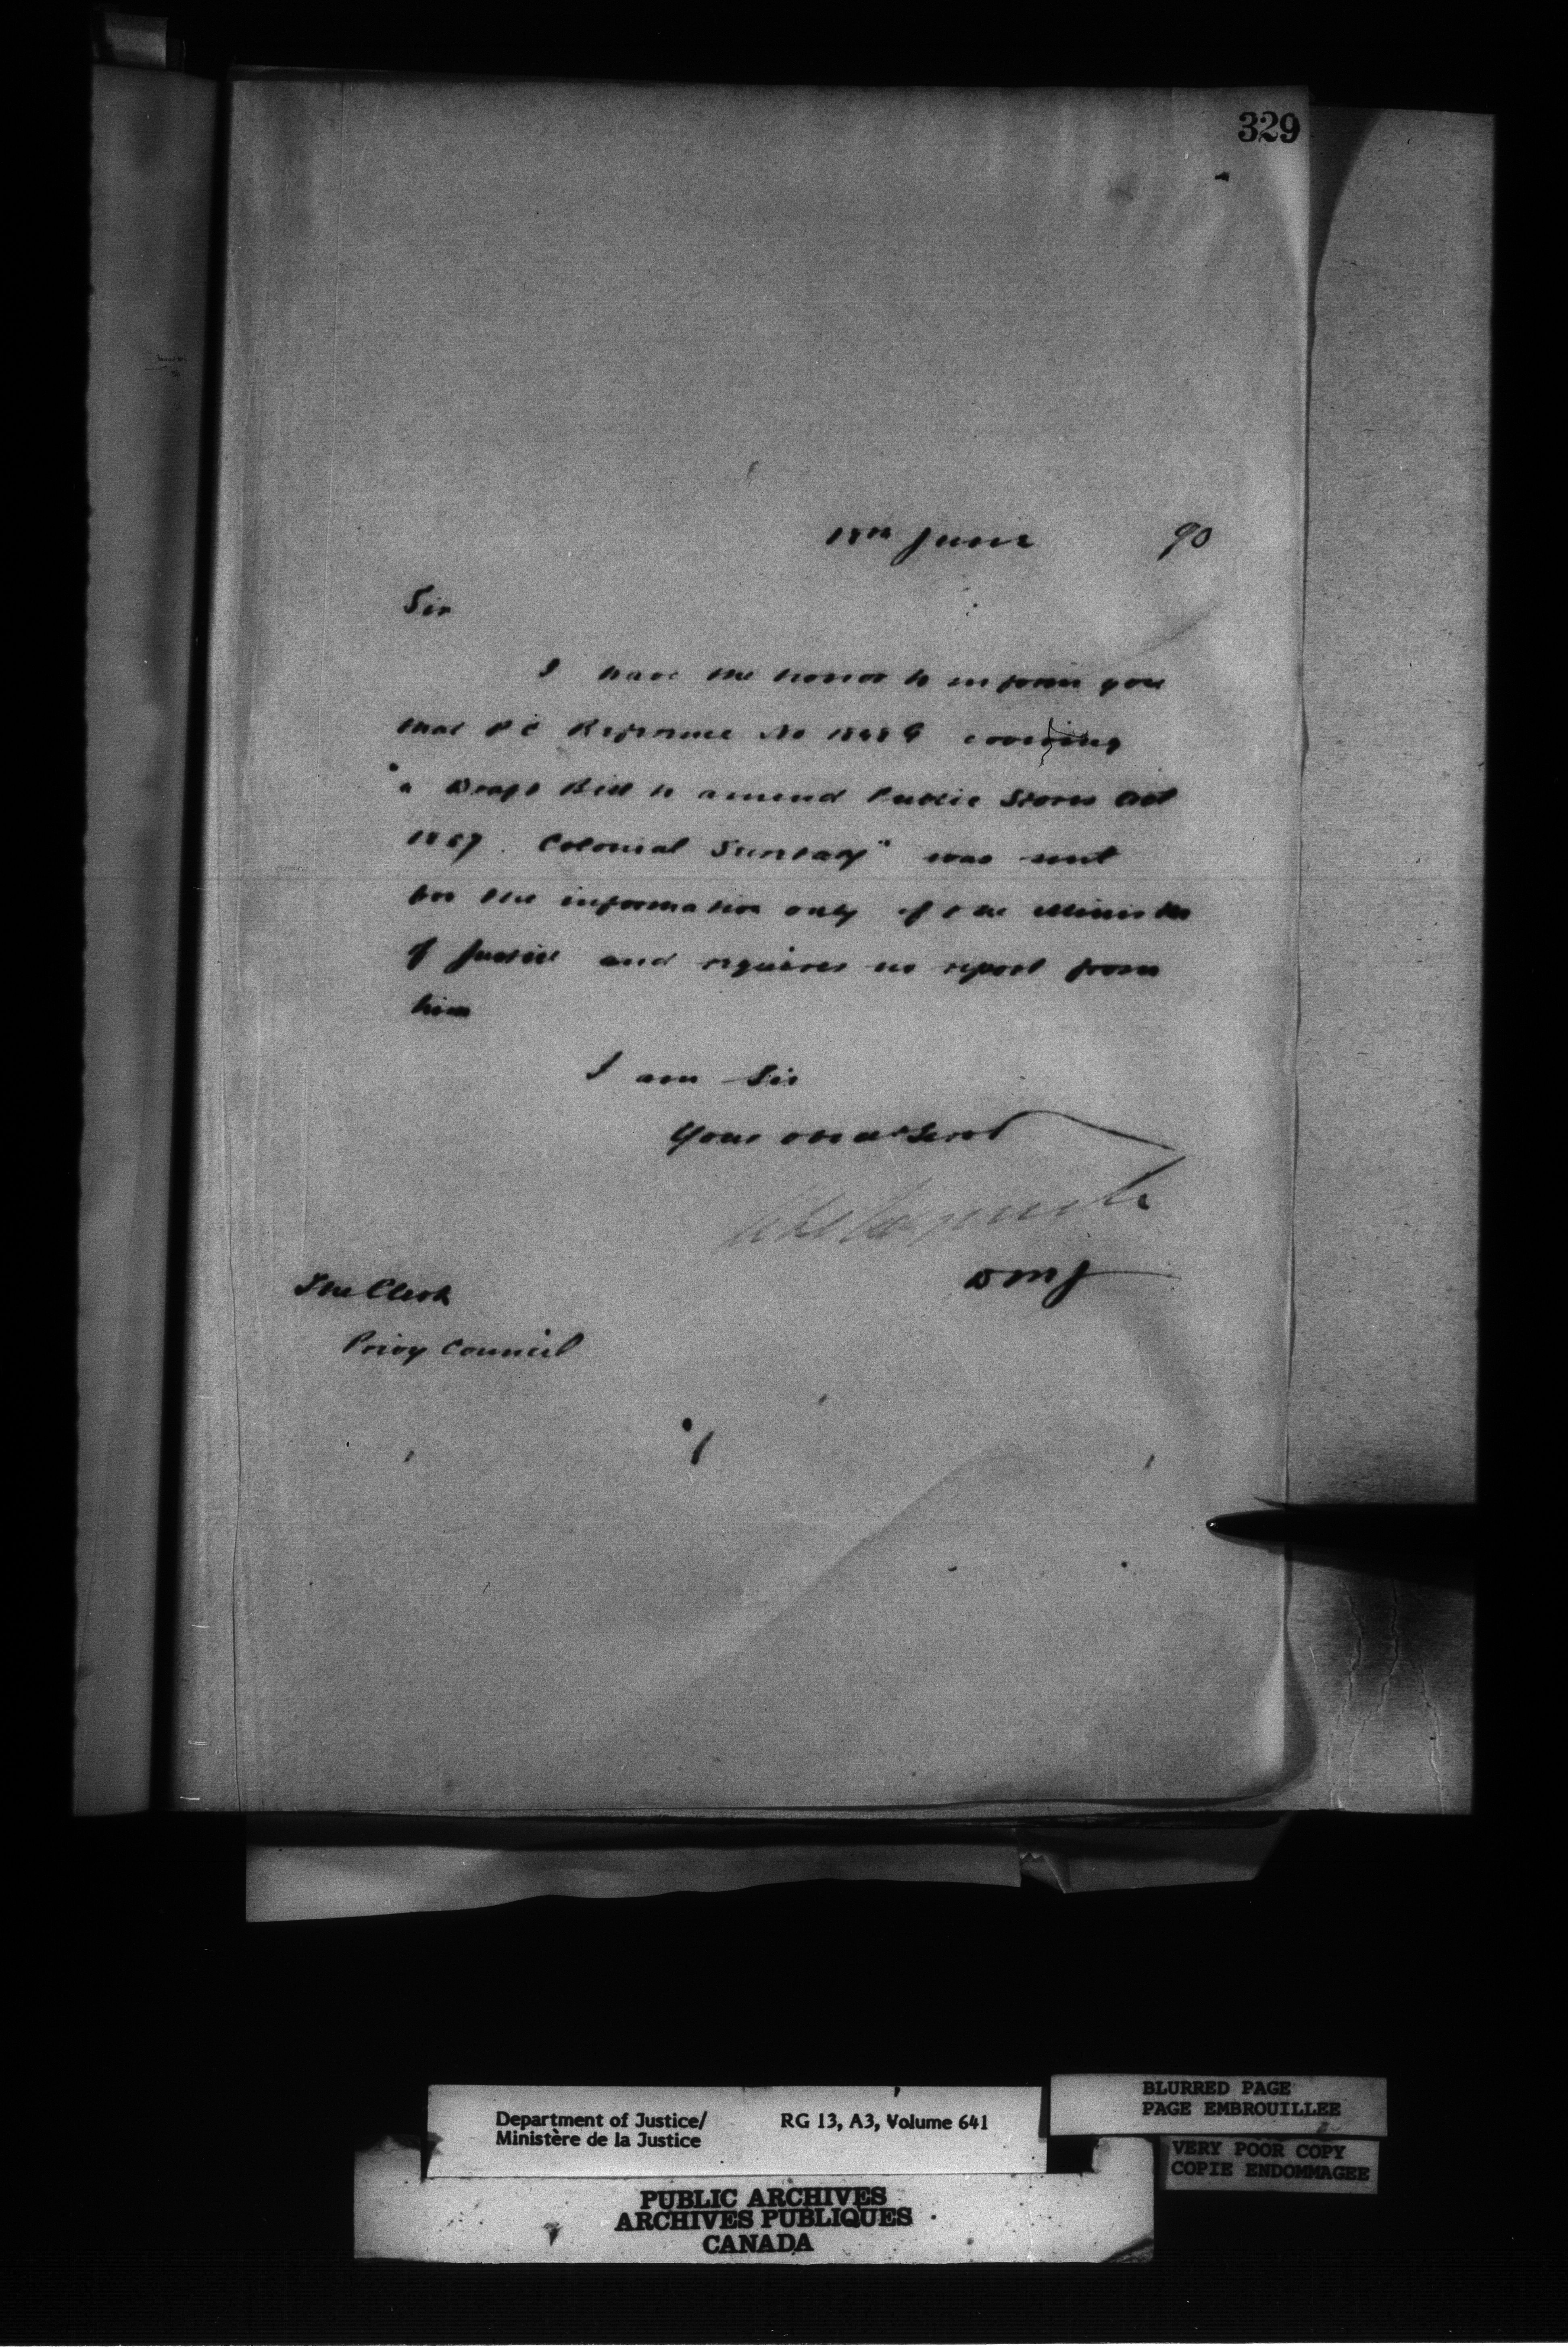 329
18th June 90
Sir
I have the honor to inform you
that P C Reference No covering
"a Draft Bill to amend Public Stores Act
Colonial " was sent
for the information only of the Minister
of Justice and requires no report from
him
I am Sir
Your obed Servt
DMJ
The Clerk
Privy Council
Department of Justice/
Ministère de la Justice
RG 13, A3, Volume 641
BLURRED PAGE
PAGE EMBROUILLEE
VERY POOR COPY
COPIE ENDOMMAGEE
PUBLIC ARCHIVES
ARCHIVES PUBLIQUES
CANADA